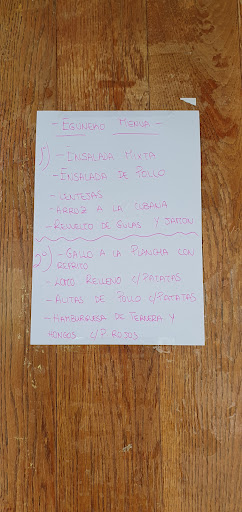 - EGUNEKO MENUA -
1º) - ENSALADA MIXTA
- ENSALADA DE POLLO
- LENTEJAS
- ARROZ A LA CUBANA
- REVUELTO DE GULAS Y JAMON
2º) - GALLO A LA PLANCHA CON
REFRITO
- LOMO RELLENO C/PATATAS
- ALITAS DE POLLO C/PATATAS
- HAMBURGUESA DE TERNERA Y
HONGOS C/P. ROJOS